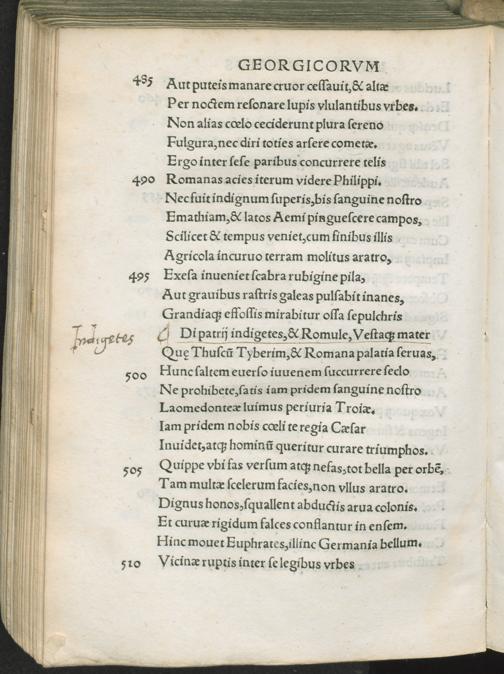 GEORGICORVM
485 Aut puteis manare cruor cessauit, & altæ
Per noctem resonare lupis vlulantibus vrbes.
Non alias cœlo ceciderunt plura sereno
Fulgura, nec diri toties arsere cometæ.
Ergo inter sese paribus concurrere telis
490 Romanas acies iterum videre Philippi.
Nec fuit indignum superis, bis sanguine nostro
Emathiam, & latos Aemi pinguescere campos,
Scilicet & tempus veniet, cum finibus illis
Agricola incuruo terram molitus aratro,
495 Exesa inueniet scabra rubigine pila,
Aut grauibus rastris galeas pulsabit inanes,
Grandiaqꝫ effossis mirabitur ossa sepulchris
Indigetes Di patrij indigetes, & Romule, Vestaqꝫ mater
Quę Thuscũ Tyberim, & Romana palatia seruas,
500 Hunc saltem euerso iuuenem succurrere seclo
Ne prohibete, satis iam pridem sanguine nostro
Laomedonteæ luimus periuria Troiæ.
Iam pridem nobis cœli te regia Cæsar
Inuidet, atqꝫ hominũ queritur curare triumphos.
505 Quippe vbi fas versum atqꝫ nefas, tot bella per orbẽ,
Tam multæ scelerum facies, non vllus aratro.
Dignus honos, squallent abductis arua colonis.
Et curuæ rigidum falces conflantur in ensem.
Hinc mouet Euphrates, illinc Germania bellum.
510 Vicinæ ruptis inter se legibus vrbes